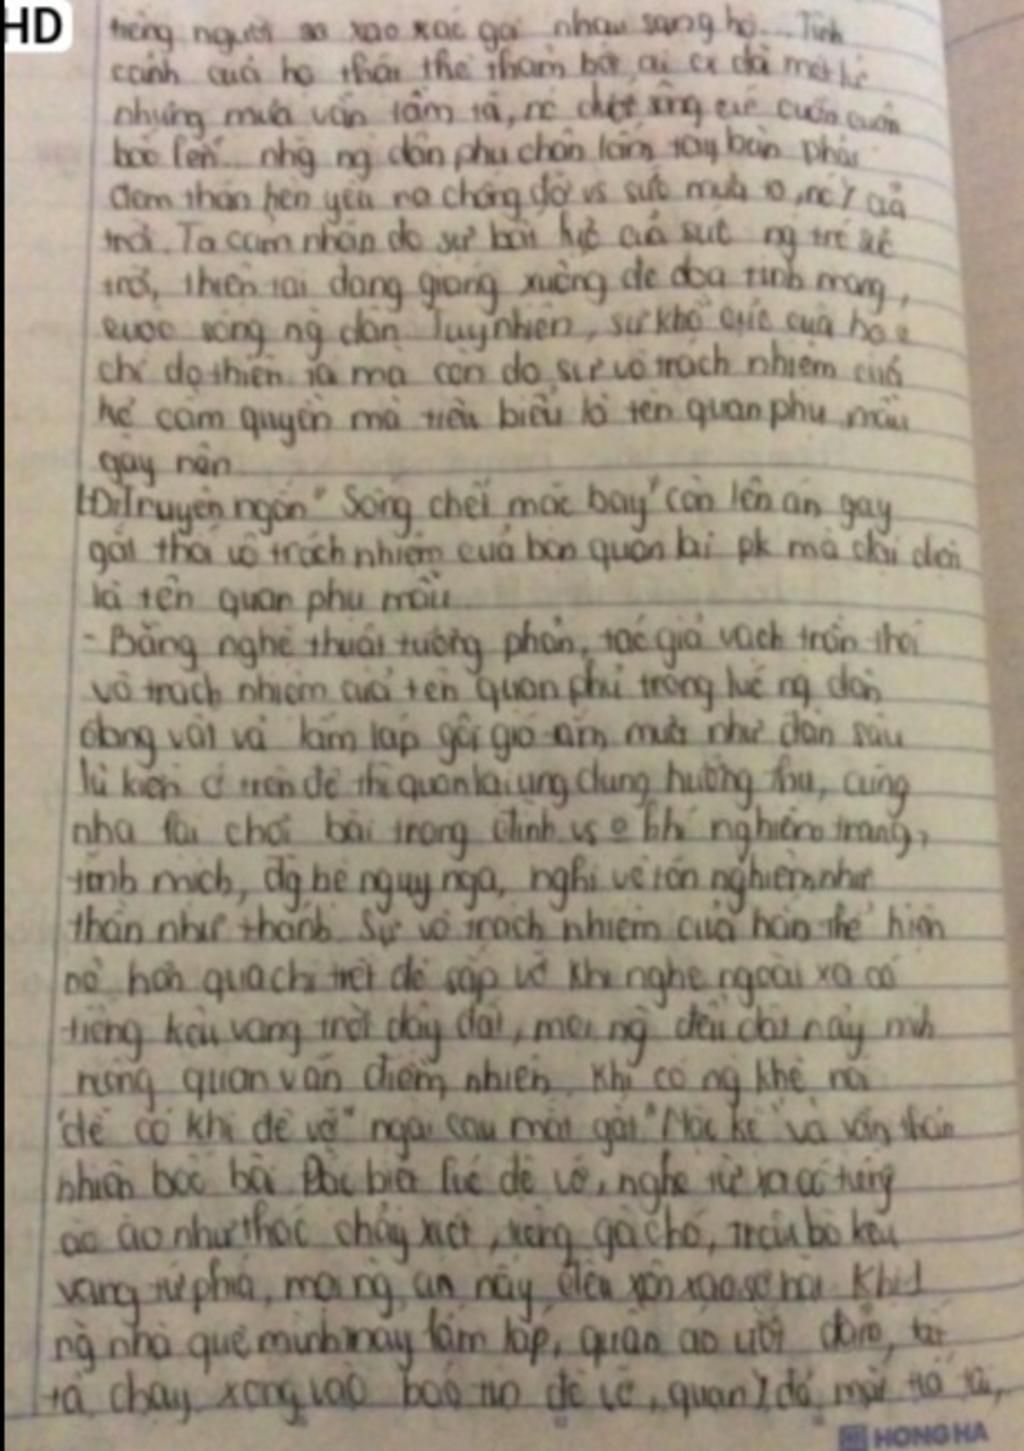 HD
tiếng người xao xác gọi nhau sang hộ... Tình
cảnh của họ thật thê thảm bởi ai ai đã mệt
nhưng mưa vẫn tầm tã, nc dưới sông cứ cuồn cuộn
bốc lên. nhg ng dân phu chân lấm tay bùn phải
đem thân hèn yếu ra chống đỡ vs sức mưa to, nc của
trời. Ta cảm nhận do sự bất lực của sức ng trc sức
trời, thiên tai đang giáng xuống đe dọa tính mạng,
cuộc sống ng dân. Tuy nhiên, sự khổ cực của họ o
chỉ do thiên ra mà còn do sự vô trách nhiệm của
kẻ cầm quyền mà tiêu biểu là tên quan phụ mẫu
gây nên
LĐ: Truyện ngắn "Sống chết mặc bay" còn lên án gay
gắt thói vô trách nhiệm của bọn quan lại pk mà đại diện
là tên quan phụ mẫu
- Bằng nghệ thuật tương phản, tác giả vạch trần thói
vô trách nhiệm của tên quan phủ trong lúc ng dân
đang vất vả lấm láp gội gió tắm mưa như đàn sâu
lũ kiến ở trên đê thì quan lại ung dung hưởng thụ, cùng
nha lại chơi bài trong đình vs o khí nghiêm trang,
tĩnh mịch, đg bệ nguy nga, nghi vệ tôn nghiêm như
thần như thánh. Sự vô trách nhiệm của hắn thể hiện
rõ hơn qua chi tiết đê sắp vỡ. Khi nghe ngoài xa có
tiếng kêu vang trời dậy đất, mọi ng đều giật nảy mình
nhưng quan vẫn điềm nhiên. Khi có ng khẽ nói
"dễ có khi đê vỡ" ngài cau mặt gắt "Mặc kệ" và vẫn thản
nhiên bốc bài. Đặc biệt lúc đê vỡ, nghe từ xa có tiếng
ào ào như thác chảy xiết, tiếng gà chó, trâu bò kêu
vang tứ phía, mọi ng đều xôn xao sợ hãi. Khi 1
ng nhà quê mình mẩy lấm láp, quần áo ướt đầm, tất
tả chạy xông vào báo tin đê vỡ, quan đỏ mặt tía tai,
HONG HA